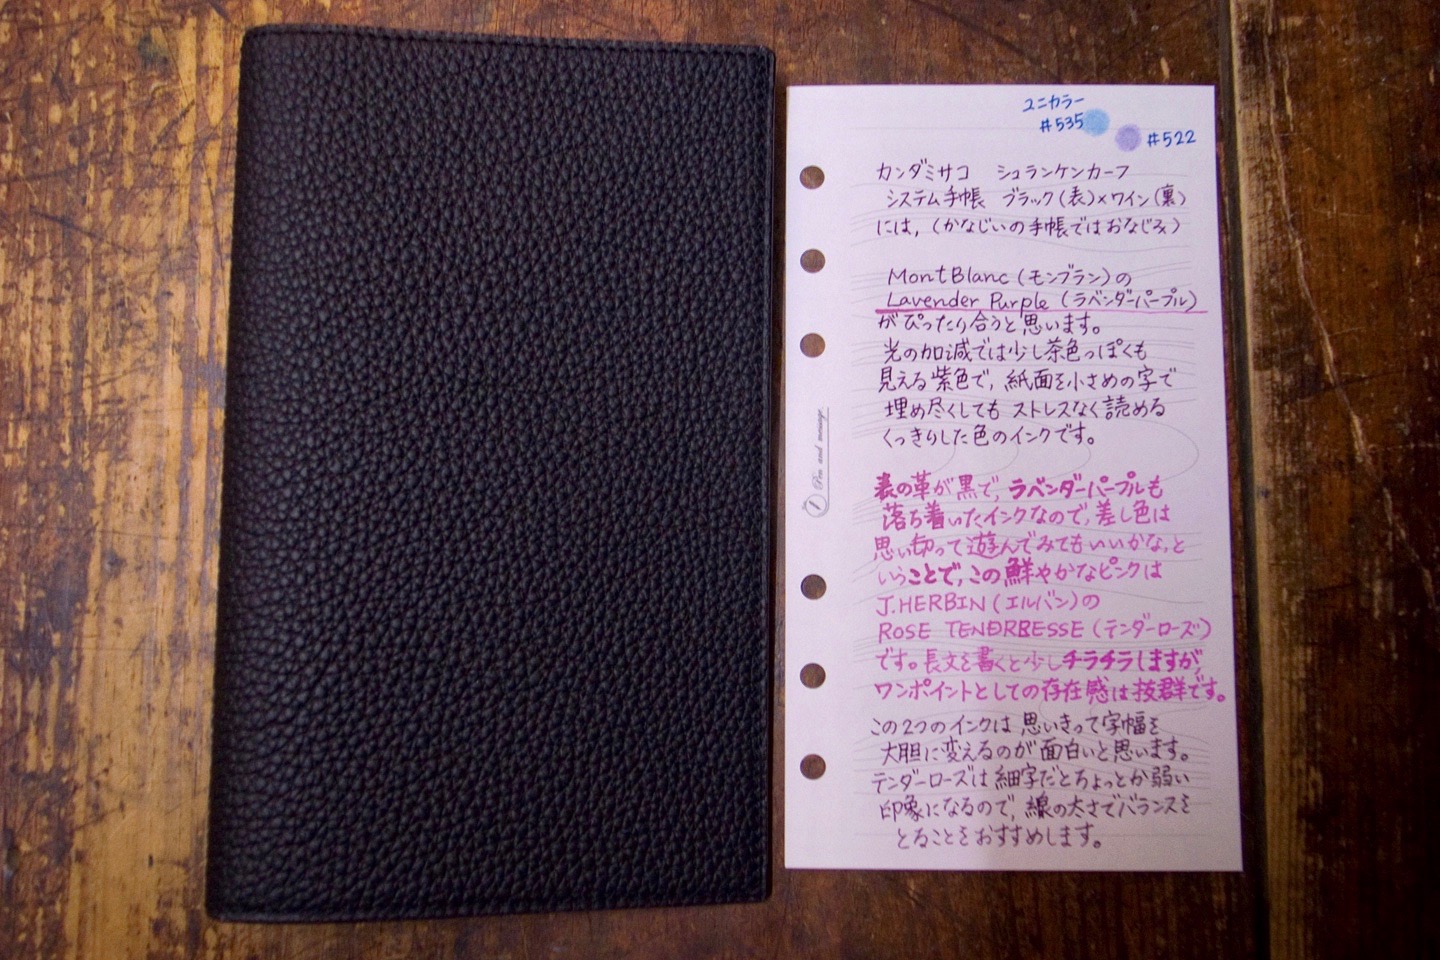 ユニカラー
#535
#522
カンダミサコ シュランケンカーフ
システム手帳 ブラック(表)×ワイン(裏)
には,(かなじいの手帳ではおなじみ)
MontBlanc(モンブラン)の
Lavender Purple(ラベンダーパープル)
がぴったり合うと思います。
光の加減では少し茶色っぽくも
見える紫色で,紙面を小さめの字で
埋め尽くしても ストレスなく読める
くっきりした色のインクです。
表の革が黒で,ラベンダーパープルも
落ち着いたインクなので,差し色は
思い切って遊んでみてもいいかな,と
いうことで,この鮮やかなピンクは
J.HERBIN(エルバン)の
ROSE TENDRBESSE(テンダーローズ)
です。長文を書くと少しチラチラしますが,
ワンポイントとしての存在感は抜群です。
この2つのインクは,思いきって字幅を
大胆に変えるのが面白いと思います。
テンダーローズは細字だとちょっとか弱い
印象になるので,線の太さでバランスを
とることをおすすめします。
Pen and message.